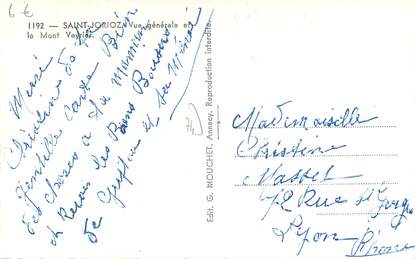 6€
1192 — SAINT-JORIOZ. Vue générale et
le Mont Veyrier.
Merci
Christine de ta
gentille carte. Bien
des choses a ta Maman
et Reçois les Bons Baisers
de
et sa
74
Edit. G. MOUCHET, Annecy. Reproduction interdite.
Mademoiselle
Christine
Masset
72 Rue St Georges
Lyon
Rhone